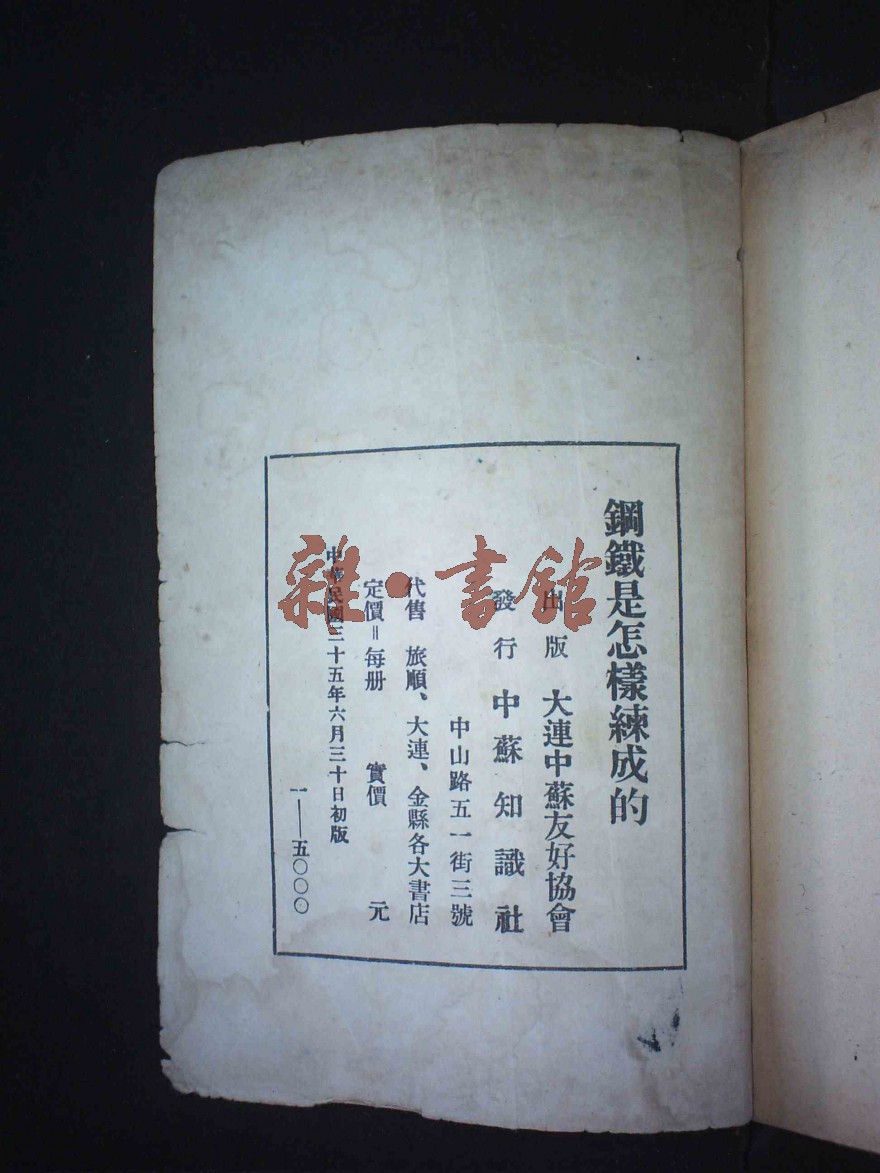 鋼鐵是怎樣練成的
出版 大連中蘇友好協會
發行 中蘇知識社
中山路五一街三號
代售 旅順、大連、金縣各大書店
定價=每册 實價 元
中華民國三十五年六月三十日初版
一——五〇〇〇
雜·書館